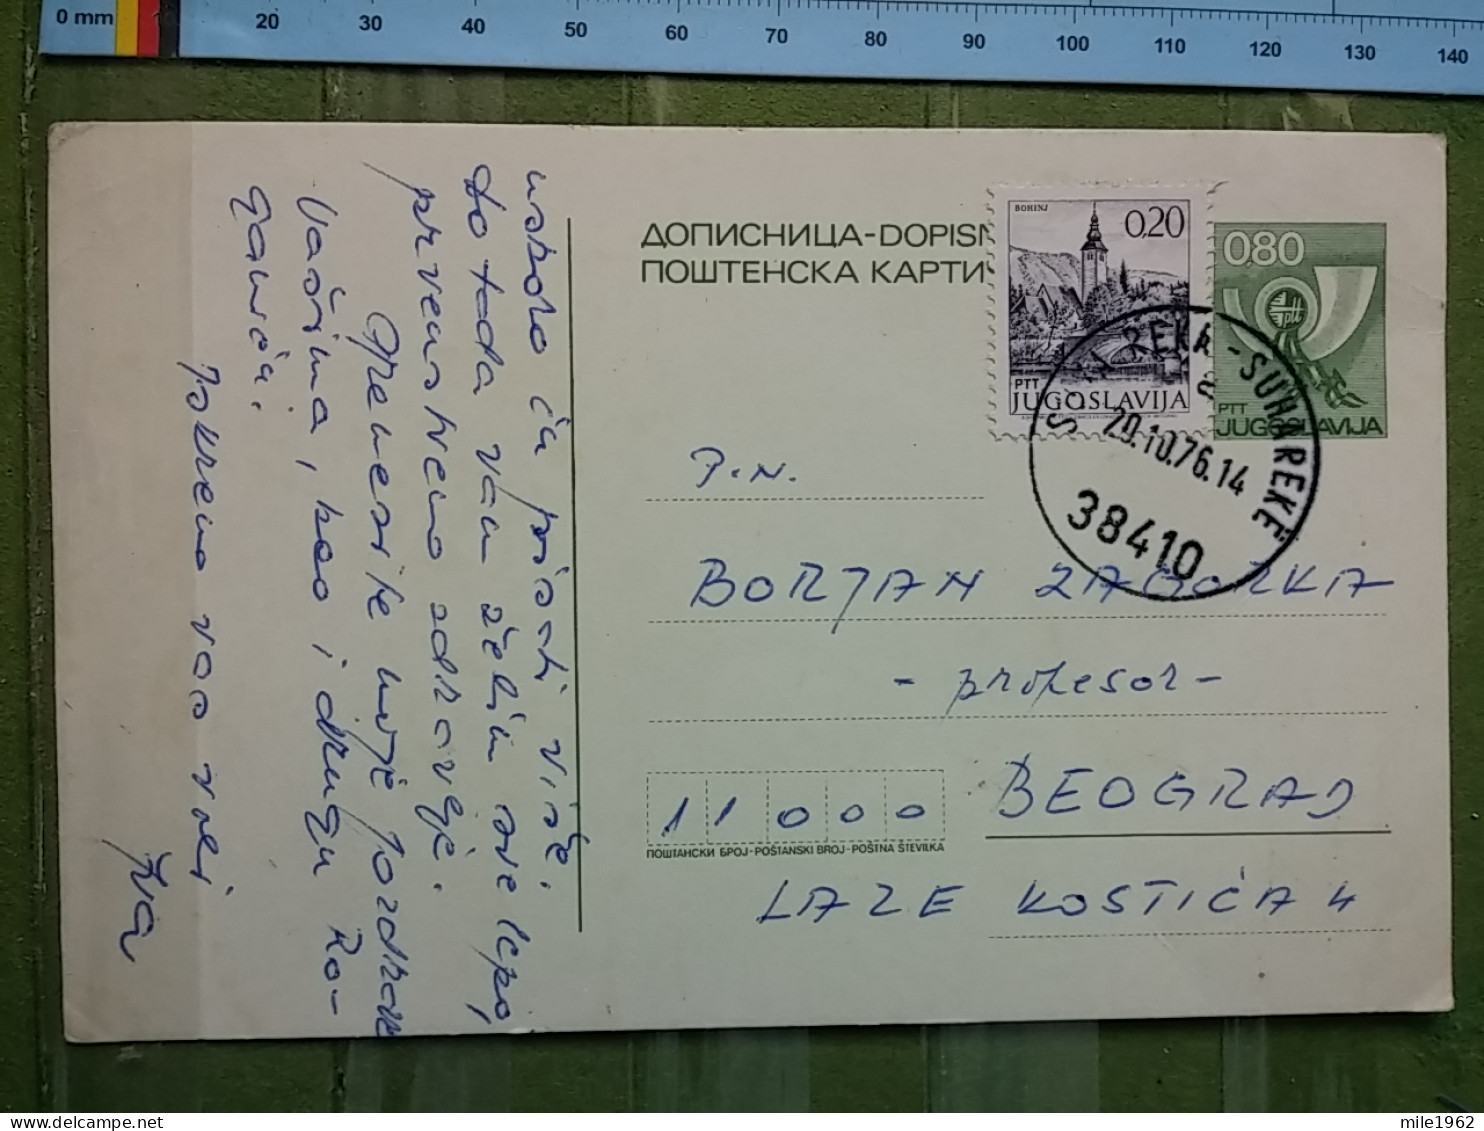 0 mm 20 30 40 50 60 70 80 90 100 110 120 130 140
ДОПИСНИЦА-DOPISN
ПОШТЕНСКА КАРТИ
BOHINJ
0,20
PTT
JUGOSLAVIJA
0,80
PTT
JUGOSLAVIJA
REKA-SUHAREKË
a
20.10.76.14
38410
P.N.
BORJAN ZAGORKA
- profesor -
11000
BEOGRAD
ПОШТАНСКИ БРОЈ-POŠTANSKI BROJ-POŠTNA ŠTEVILKA
LAZE KOSTIĆA 4
uskoro ću pisati više.
Do tada vam želim sve lepo,
prvenstveno zdravlje.
moje pozdrave
Vašima, kao i drugu Ro-
Iskreno vas voli
Iva
mile1962